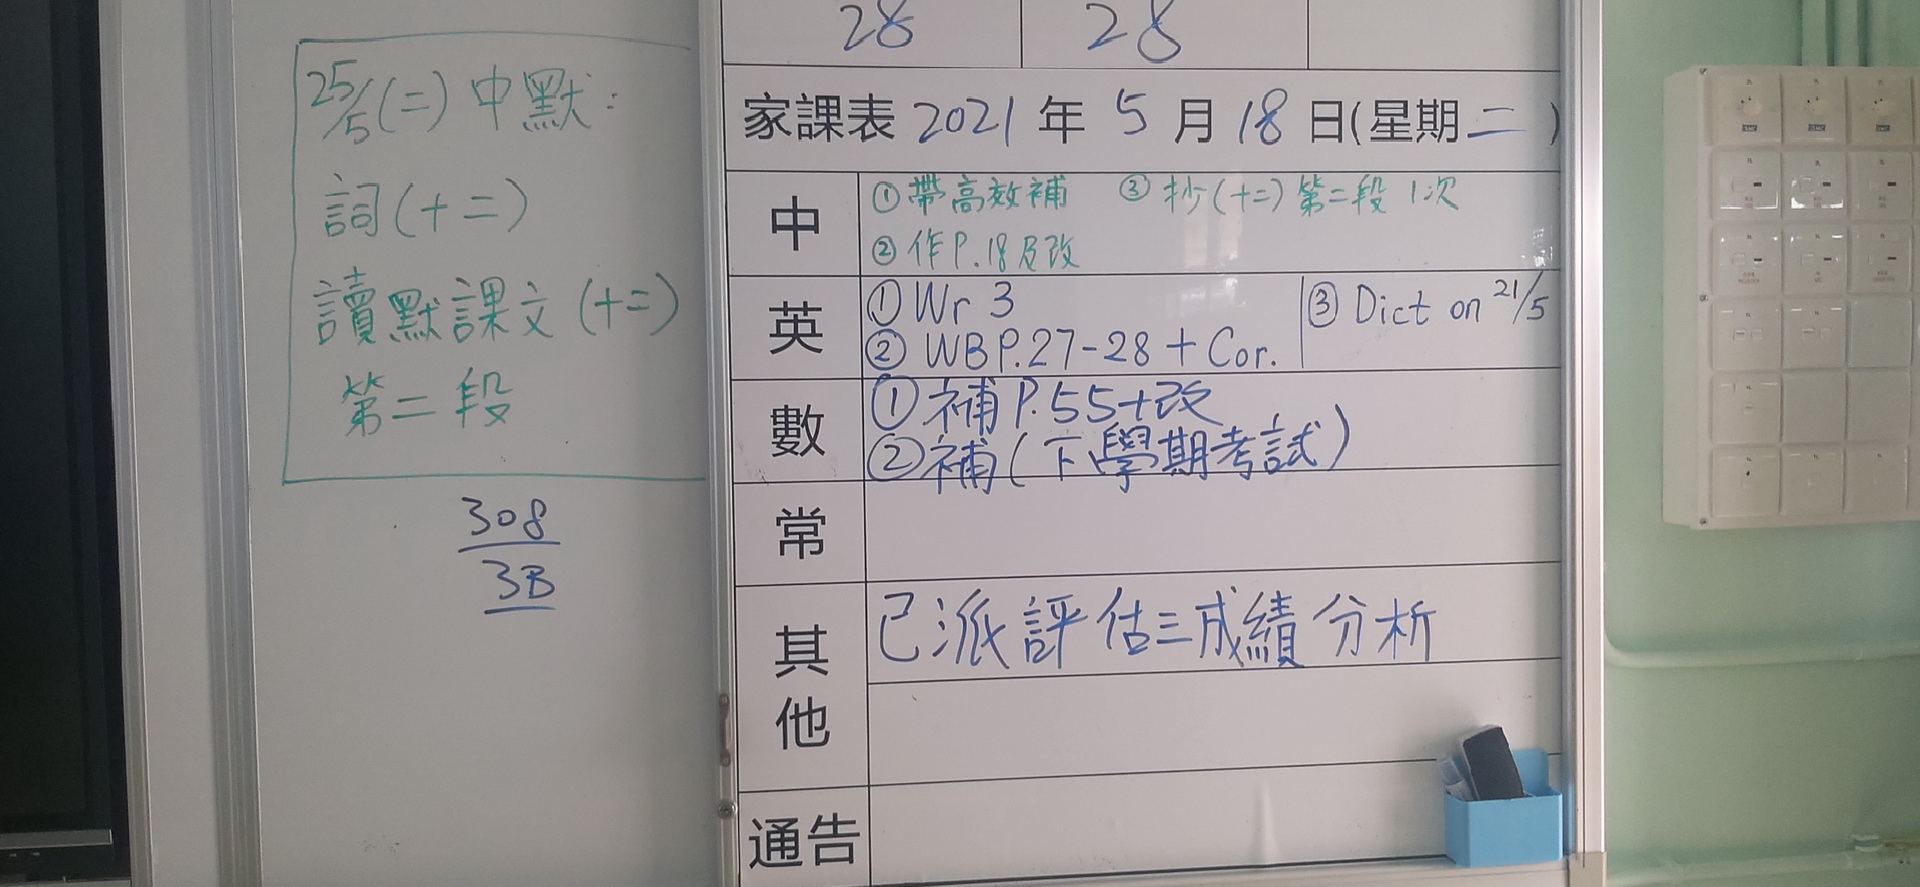 25/5(二)中默：
詞(十二)
讀默課文(十二)
第二段
308
3B
28 28
家課表 2021 年 5 月 18 日(星期二)
中
①帶高效補 ③抄(十二)第二段 1次
②作P.18及改
英
①Wr 3 ③ Dict on 21/5
② WB P.27-28 + Cor.
數
①補P.55+改
②補(下學期考試)
常
其他
已派評估三成績分析
通告